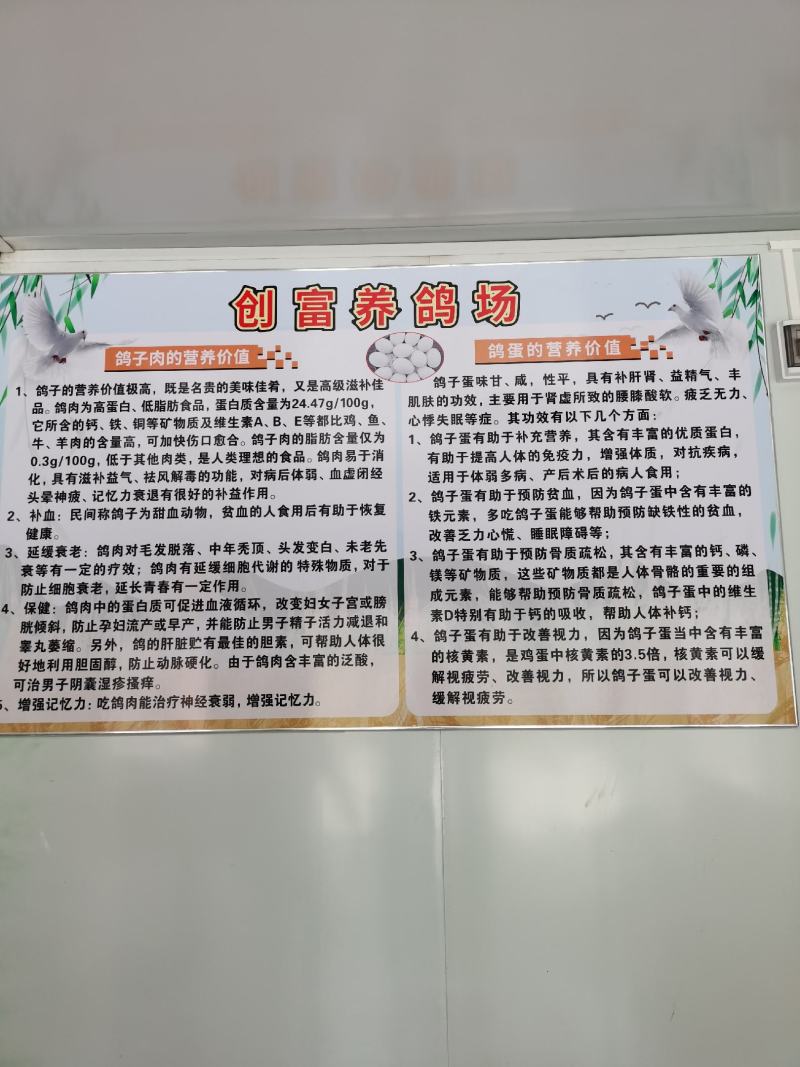 创富养鸽场
鸽子肉的营养价值
1、鸽子的营养价值极高，既是名贵的美味佳肴，又是高级滋补佳
品。鸽肉为高蛋白、低脂肪食品，蛋白质含量为24.47g/100g，
它所含的钙、铁、铜等矿物质及维生素A、B、E等都比鸡、鱼、
牛、羊肉的含量高，可加快伤口愈合。鸽子肉的脂肪含量仅为
0.3g/100g，低于其他肉类，是人类理想的食品。鸽肉易于消
化，具有滋补益气、祛风解毒的功能，对病后体弱、血虚闭经
头晕神疲、记忆力衰退有很好的补益作用。
2、补血：民间称鸽子为甜血动物，贫血的人食用后有助于恢复
健康。
3、延缓衰老：鸽肉对毛发脱落、中年秃顶、头发变白、未老先
衰等有一定的疗效；鸽肉有延缓细胞代谢的特殊物质，对于
防止细胞衰老，延长青春有一定作用。
4、保健：鸽肉中的蛋白质可促进血液循环，改变妇女子宫或膀
胱倾斜，防止孕妇流产或早产，并能防止男子精子活力减退和
睾丸萎缩。另外，鸽的肝脏贮有最佳的胆素，可帮助人体很
好地利用胆固醇，防止动脉硬化。由于鸽肉含丰富的泛酸，
可治男子阴囊湿疹搔痒。
5、增强记忆力：吃鸽肉能治疗神经衰弱，增强记忆力。
鸽蛋的营养价值
鸽子蛋味甘、咸，性平，具有补肝肾、益精气、丰
肌肤的功效，主要用于肾虚所致的腰膝酸软。疲乏无力、
心悸失眠等症。其功效有以下几个方面：
1、鸽子蛋有助于补充营养，其含有丰富的优质蛋白，
有助于提高人体的免疫力，增强体质，对抗疾病，
适用于体弱多病、产后术后的病人食用；
2、鸽子蛋有助于预防贫血，因为鸽子蛋中含有丰富的
铁元素，多吃鸽子蛋能够帮助预防缺铁性的贫血，
改善乏力心慌、睡眠障碍等；
3、鸽子蛋有助于预防骨质疏松，其含有丰富的钙、磷、
镁等矿物质，这些矿物质都是人体骨骼的重要的组
成元素，能够帮助预防骨质疏松，鸽子蛋中的维生
素D特别有助于钙的吸收，帮助人体补钙；
4、鸽子蛋有助于改善视力，因为鸽子蛋当中含有丰富
的核黄素，是鸡蛋中核黄素的3.5倍，核黄素可以缓
解视疲劳、改善视力，所以鸽子蛋可以改善视力、
缓解视疲劳。